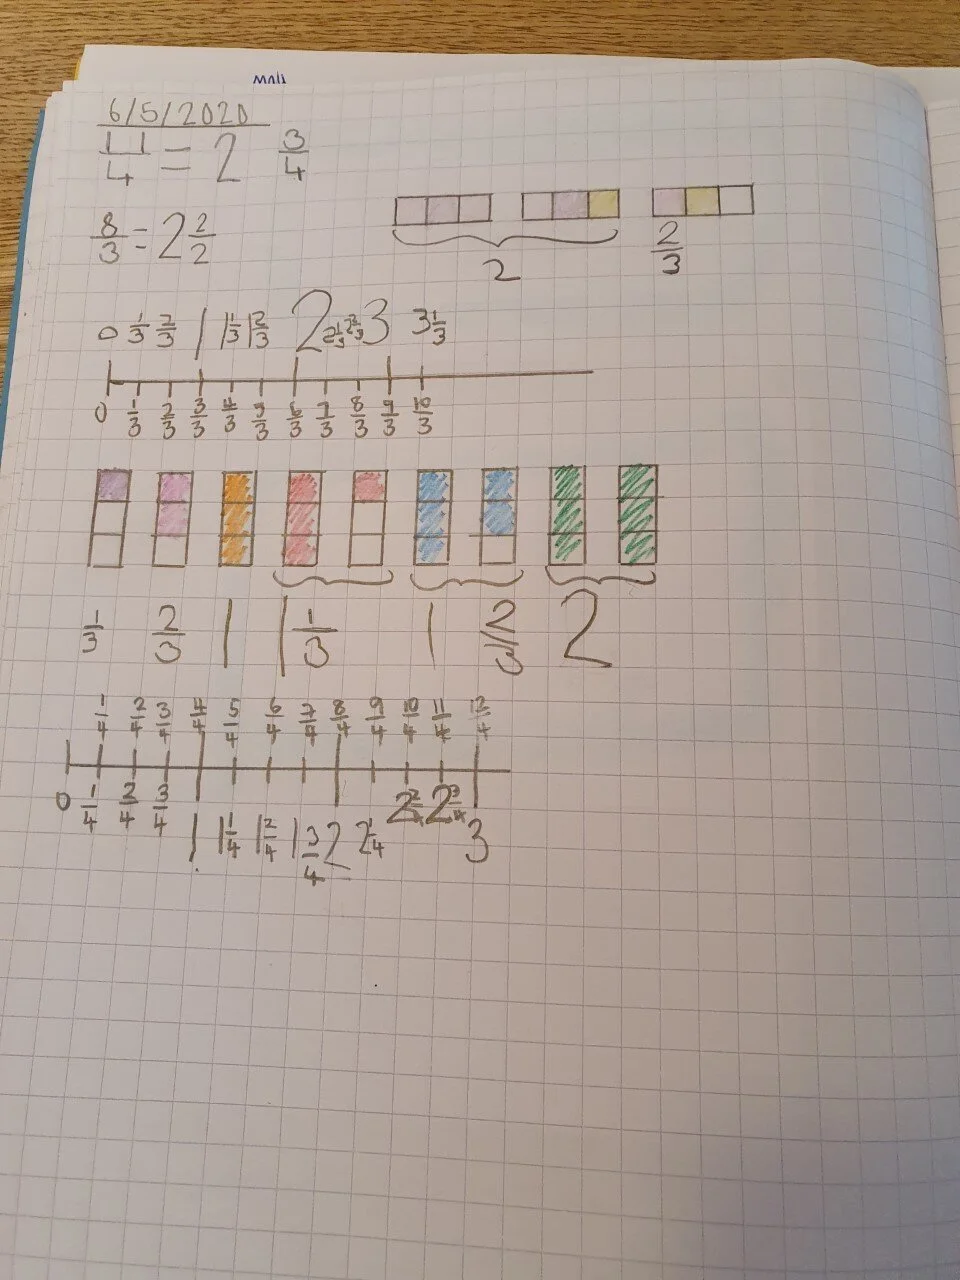 MALI
6/5/2020
11/4 = 2 3/4
8/3 = 2 2/2
2
2/3
0 1/3 2/3 1 1 1/3 1 2/3 2 2 1/3 2 2/3 3 3 1/3
0 1/3 2/3 3/3 4/3 5/3 6/3 7/3 8/3 9/3 10/3
1/3 2/3 1 1 1/3 1 2/3 2
1/4 2/4 3/4 4/4 5/4 6/4 7/4 8/4 9/4 10/4 11/4 12/4
0 1/4 2/4 3/4 1 1 1/4 1 2/4 1 3/4 2 2 1/4 2 2/4 2 3/4 3